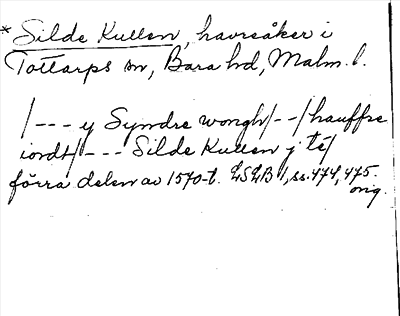 *Silde Kullen, havreåker i
Tottarps sn, Bara hd, Malm. l.
/--- y Syndre wongh/--/hauffre
iordt/--- Silde Kullen j té/
förra delen av 1570-t. LSLB 1, ss. 474, 475.
orig.